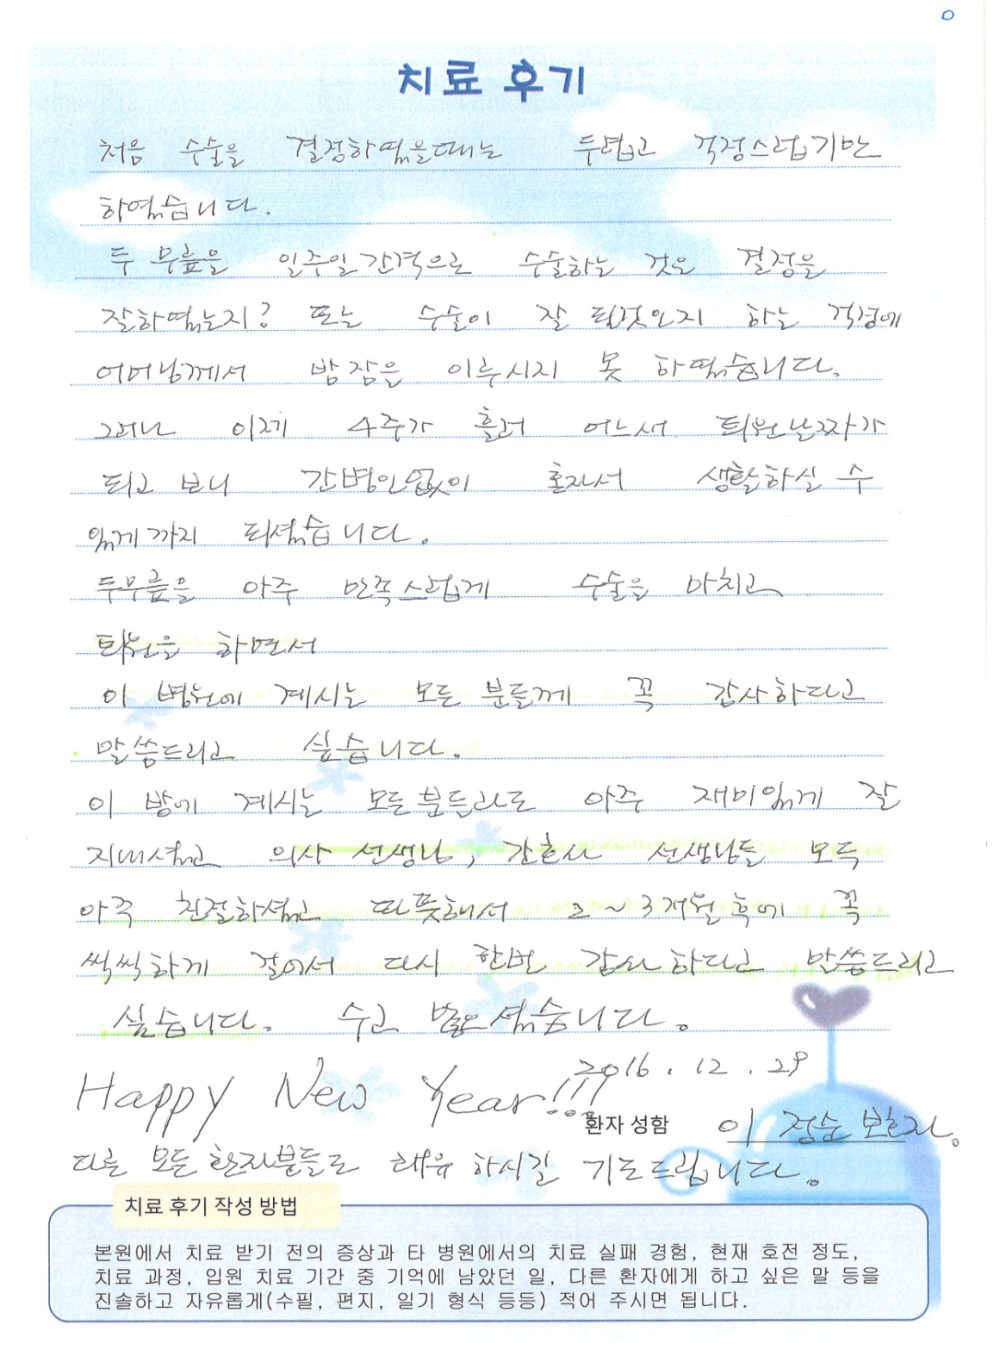 치료 후기
처음 수술을 결정하였을때는 두렵고 걱정스럽기만
하였습니다.
두 무릎을 일주일간격으로 수술하는 것은 결정을
잘하였는지? 또는 수술이 잘 될것인지 하는 걱정에
어머님께서 밤잠을 이루시지 못 하였습니다.
그러나 이제 4주가 흘러 어느새 퇴원날짜가
되고 보니 간병인없이 혼자서 생활하실 수
있게까지 되셨습니다.
두무릎을 아주 만족스럽게 수술을 마치고
퇴원을 하면서
이 병원에 계시는 모든 분들께 꼭 감사하다고
말씀드리고 싶습니다.
이 방에 계시는 모든분들과도 아주 재미있게 잘
지내셨고 의사 선생님, 간호사 선생님들 모두
아주 친절하셨고 따뜻해서 2~3개월후에 꼭
씩씩하게 걸어서 다시 한번 감사하다고 말씀드리고
싶습니다. 수고 많으셨습니다.
2016. 12. 29
Happy New Year!!!
환자 성함 이정순 보호자.
다른 모든 환자분들도 쾌유 하시길 기도드립니다.
치료 후기 작성 방법
본원에서 치료 받기 전의 증상과 타 병원에서의 치료 실패 경험, 현재 호전 정도,
치료 과정, 입원 치료 기간 중 기억에 남았던 일, 다른 환자에게 하고 싶은 말 등을
진솔하고 자유롭게(수필, 편지, 일기 형식 등등) 적어 주시면 됩니다.